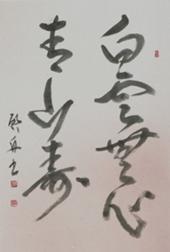 白雲無心
青山壽